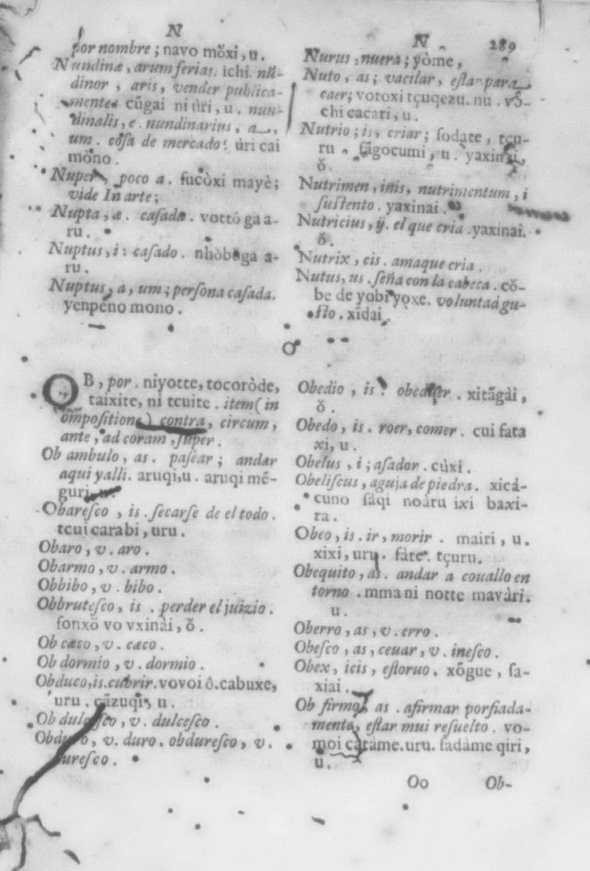 N
por nombre; navo mŏxi, u.
Nundinæ, arum ferias. ichi. nũ-
dinor, aris, vender publica-
mente. cũgai ni ùri, u. nun-
dinalis, e. nundinarius, a,
um. cosa de mercado: úri cai
mono.
Nuper, poco a. fucòxi mayè;
vide In arte;
Nupta, æ. casada. vottó ga a-
ru.
Nuptus, i: casado. nhòbǒga a-
ru.
Nuptus, a, um; persona casada.
yenpeno mono.
N 289
Nurus, nuera; yòme,
Nuto, as; vacilar, estar para
caer; votoxi tçuqezu. nu. vŏ-
chi cacari, u.
Nutrio; is, criar; sodate, tçu-
ru. fãgocumi, u. yaxinai,
ŏ.
Nutrimen, inis, nutrimentum, i
sustento. yaxinai.
Nutricius, ij. el que cria. yaxinai.
ŏ.
Nutrix, cis. ama que cria.
Nutus, us. seña con la cabeça. cŏ-
be de yobi yoxe. voluntad gu-
sto. xidai,
O
OB, por. niyotte, tocoròde,
taixite, ni tcuite. item (in
ompositione) contra, circum,
ante, ad coram, super.
Ob ambulo, as. pasear; andar
aqui yalli. aruqi, u. aruqi mé-
guri, u.
Obaresco, is. secarse de el todo.
tcui carabi, uru.
Obaro, v. aro.
Obarmo, v. armo.
Obbibo, v. bibo.
Obbrutesco, is. perder el juizio.
fonxŏ vo vxinài, ŏ.
Ob cæco, v. cæco.
Ob dormio, v. dormio.
Obduco, is. cubrir. vovoi ô. cabuxe,
uru. cãzuqi, u.
Ob dulcesco, v. dulcesco.
Obduro, v. duro. obduresco, v.
duresco.
Obedio, is. obedecer. xitãgài,
ŏ.
Obedo, is. roer, comer. cui fata
xi, u.
Obelus, i; asador. cùxi.
Obeliscus, aguja de piedra. xicá-
cuno fáqi noáru ixi baxi-
ra.
Obeo, is. ir, morir. mairi, u.
xixi, uru. fáte. tçuru.
Obequito, as. andar a couallo en
torno. mma ni notte mavàri.
u.
Oberro, as, v. erro.
Obesco, as, ceuar, v. inesco.
Obex, icis, estoruo. xŏgue, sa-
xiai.
Ob firmo, as. afirmar porfiada-
mente, estar mui resuelto. vo-
moi càtame. uru. sadàme qiri,
u.
Oo Ob-